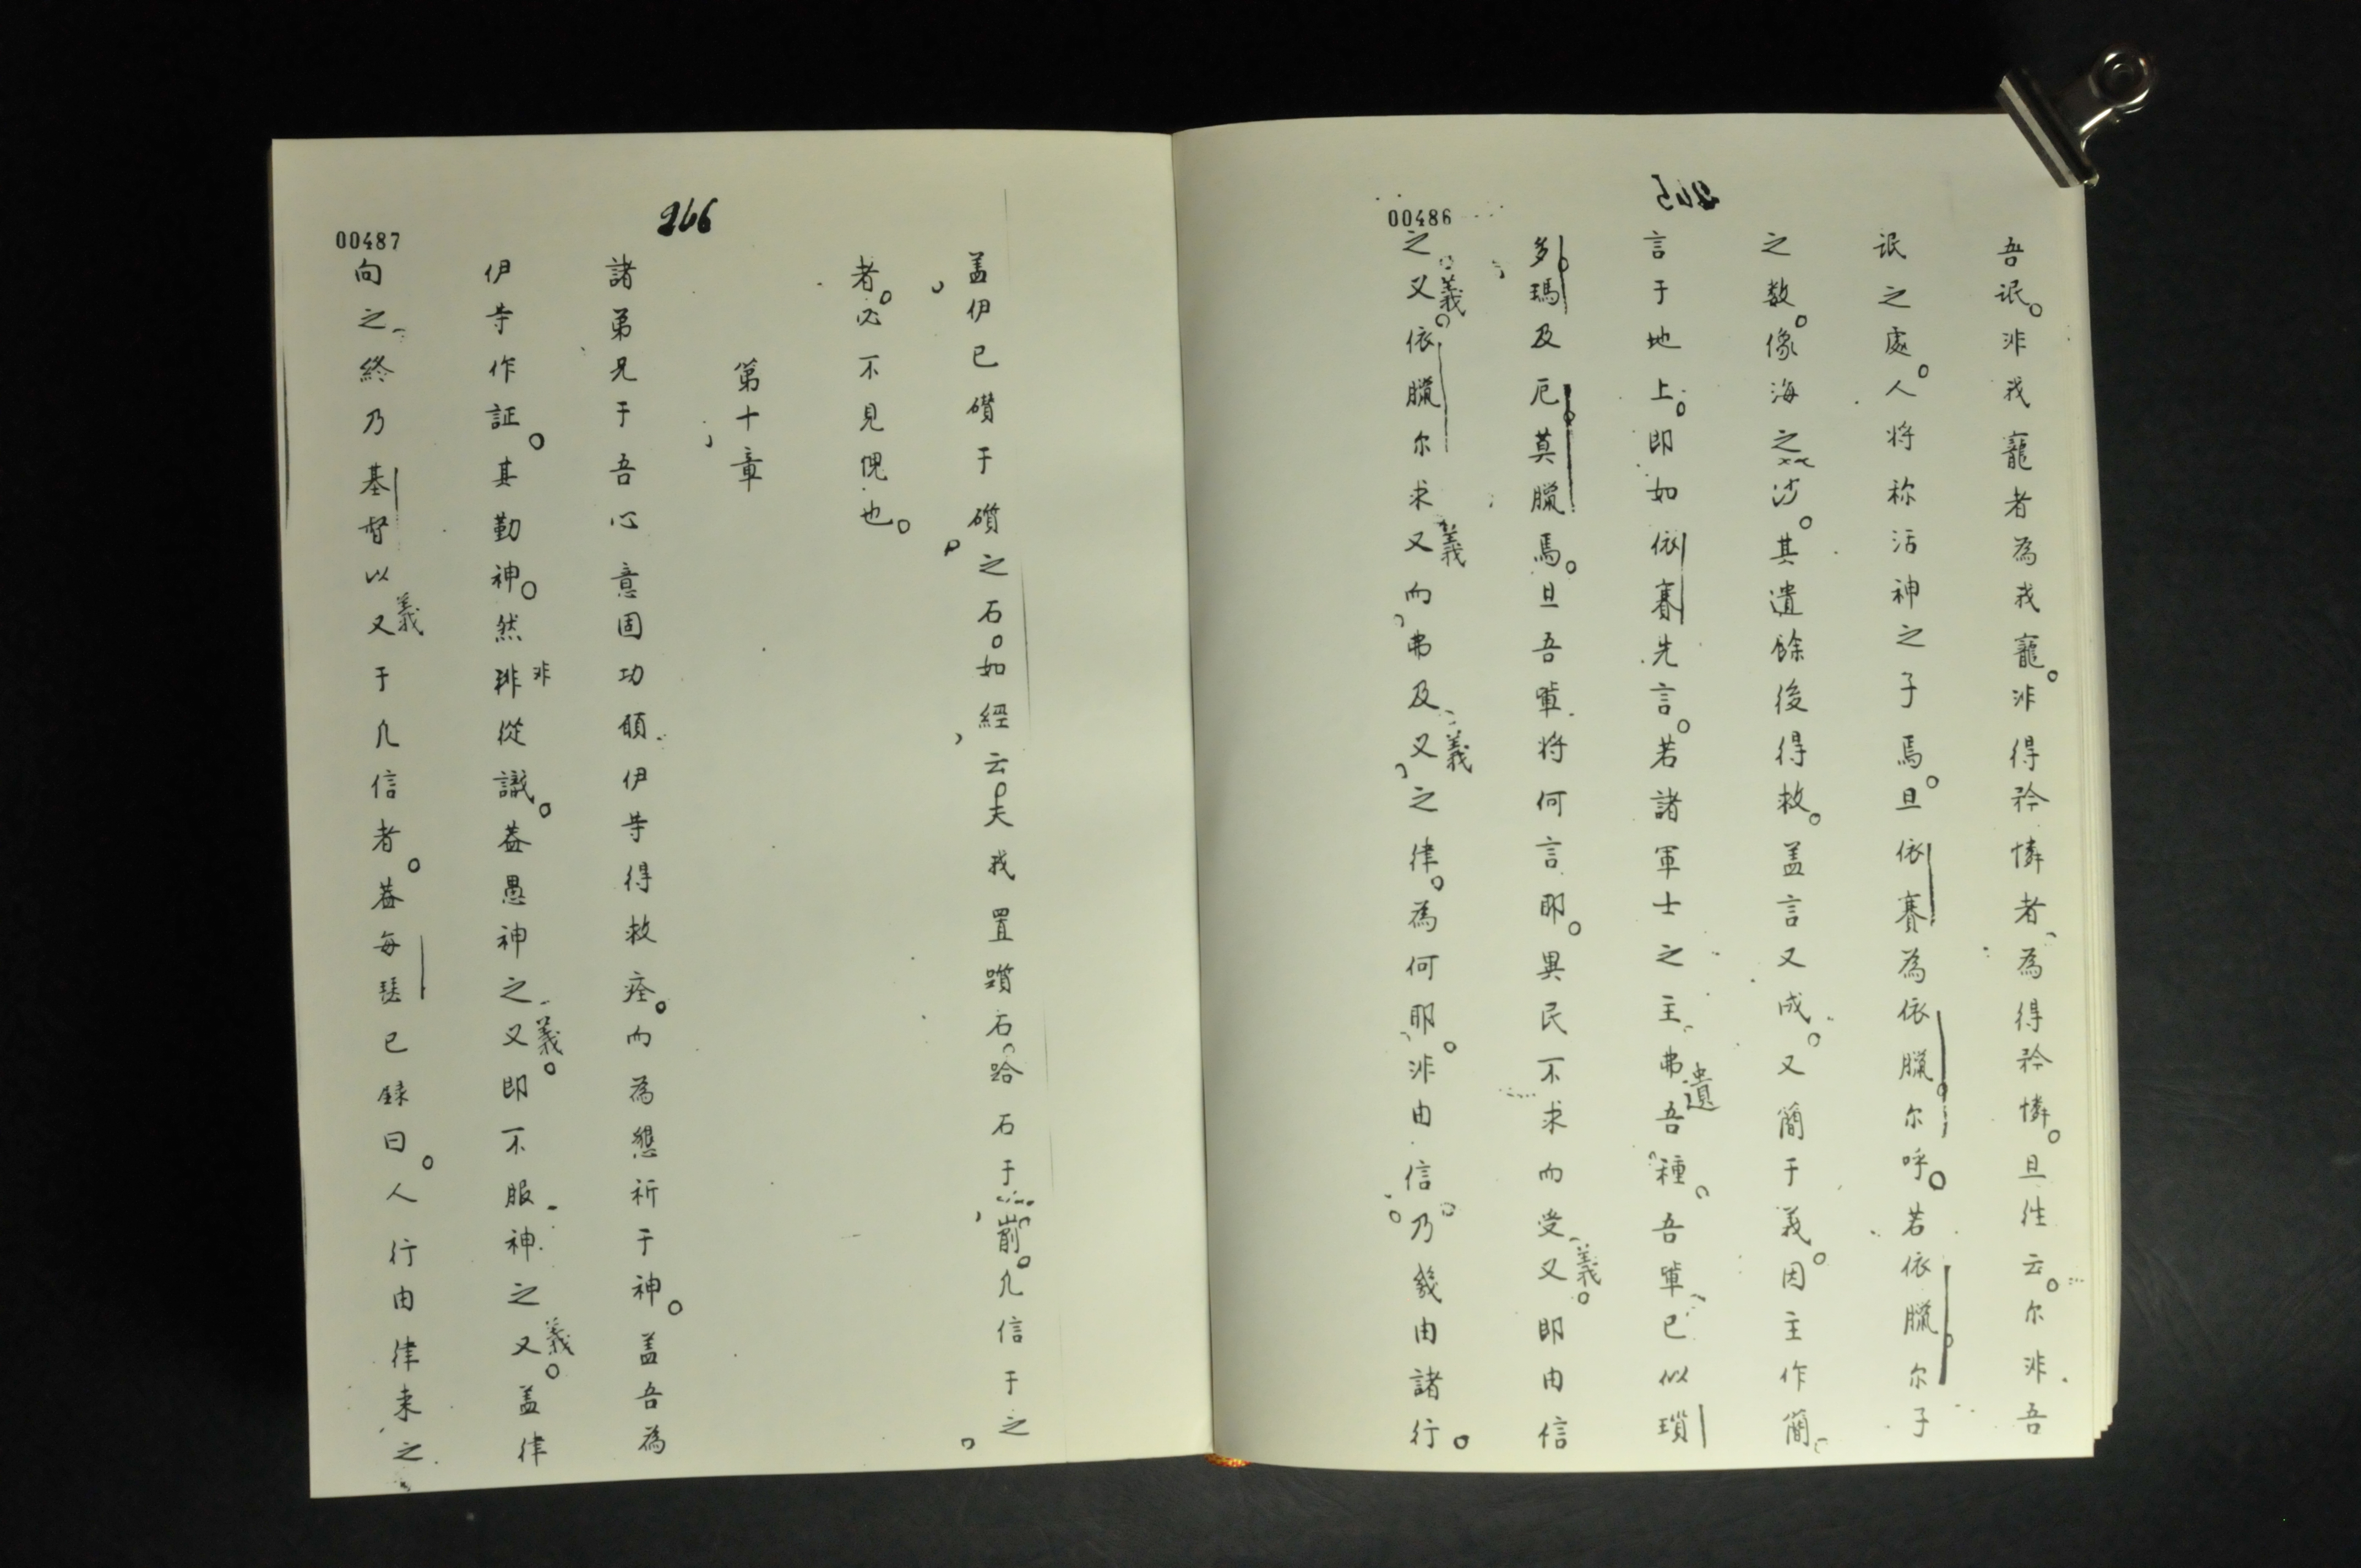 265
00486
吾氓。非我寵者為我寵。非得矜憐者為得矜憐。且往云。尔非吾
氓之處。人将称活神之子焉。且依賽為依臘尔呼。若依臘尔子
之数。像海之沙。其遺餘後得救。盖言又成。又簡于義。因主作簡
言于地上。即如依賽先言。若諸軍士之主弗遺吾種。吾輩已似瑣
多瑪及厄莫臘焉。且吾輩将何言耶。異民不求而受义義。即由信
之义義。依臘尔求义義而弗及义義之律。為何耶。非由信。乃幾由諸行。
266
00487
盖伊已礸于礩之石。如經云夫我置躓石跲石于前。凡信于之
者。必不見愧也。
第十章
諸弟兄于吾心意固功頋伊等得救痊。而為懇祈于神。盖吾為
伊等作証。其勤神。然非從識。葢愚神之义義。即不服神之义義。盖律
向之終乃基督以义義于凡信者。葢每瑟已録曰。人行由律来之